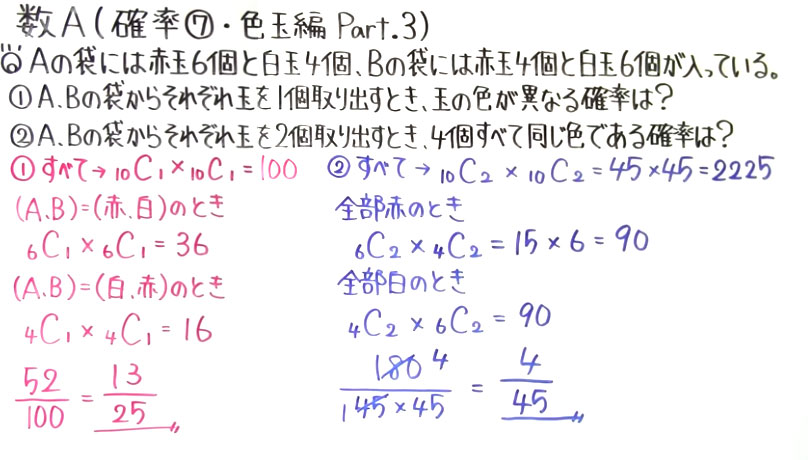 数A(確率⑦・色玉編 Part.3)
Aの袋には赤玉6個と白玉4個、Bの袋には赤玉4個と白玉6個が入っている。
①A、Bの袋からそれぞれ玉を1個取り出すとき、玉の色が異なる確率は?
②A、Bの袋からそれぞれ玉を2個取り出すとき、4個すべて同じ色である確率は?
①すべて→₁₀C₁×₁₀C₁=100
(A、B)=(赤、白)のとき
₆C₁×₆C₁=36
(A、B)=(白、赤)のとき
₄C₁×₄C₁=16
52/100=13/25
②すべて→₁₀C₂×₁₀C₂=45×45=2225
全部赤のとき
₆C₂×₄C₂=15×6=90
全部白のとき
₄C₂×₆C₂=90
180 4/1 45×45=4/45